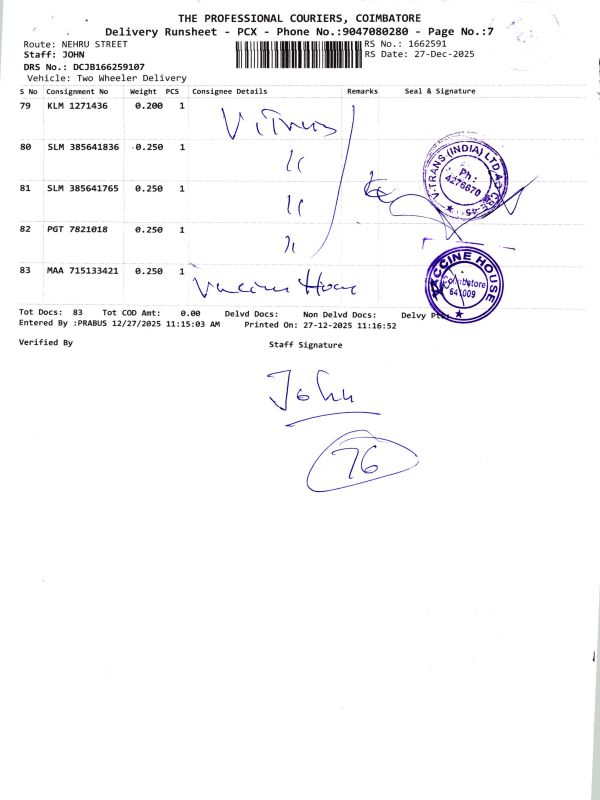 THE PROFESSIONAL COURIERS, COIMBATORE
Delivery Runsheet - PCX - Phone No.:9047080280 - Page No.:7
Route: NEHRU STREET
RS No.: 1662591
Staff: JOHN
RS Date: 27-Dec-2025
DRS No.: DCJB166259107
Vehicle: Two Wheeler Delivery
S No Consignment No Weight PCS Consignee Details Remarks Seal & Signature
79 KLM 1271436 0.200 1 ViTrans
80 SLM 385641836 0.250 1 "
81 SLM 385641765 0.250 1 "
82 PGT 7821018 0.250 1 "
V-TRANS (INDIA) LTD
Ph:
4276670
83 MAA 715133421 0.250 1 Vaccine House
VACCINE HOUSE
Coimbatore
641 009
Tot Docs: 83 Tot COD Amt: 0.00 Delvd Docs: Non Delvd Docs: Delvy
Entered By :PRABUS 12/27/2025 11:15:03 AM Printed On: 27-12-2025 11:16:52
Verified By Staff Signature
John
76